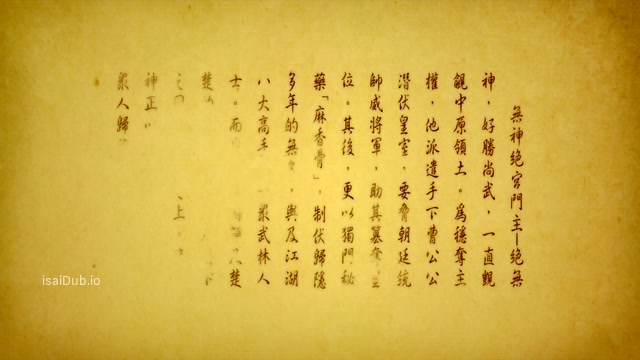 無神絕宮門主—絕無
神，好勝尚武，一直覬
覦中原領土。為穩奪主
權，他派遣手下曹公公
潛伏皇室，要脅朝廷統
帥威將軍，助其篡奪主
位。其後，更以獨門秘
藥「麻香骨」，制伏歸隱
多年的無，與及江湖
八大高手一眾武林人
士。而八楚
楚
之
神正上
眾人歸
isaiDub.io